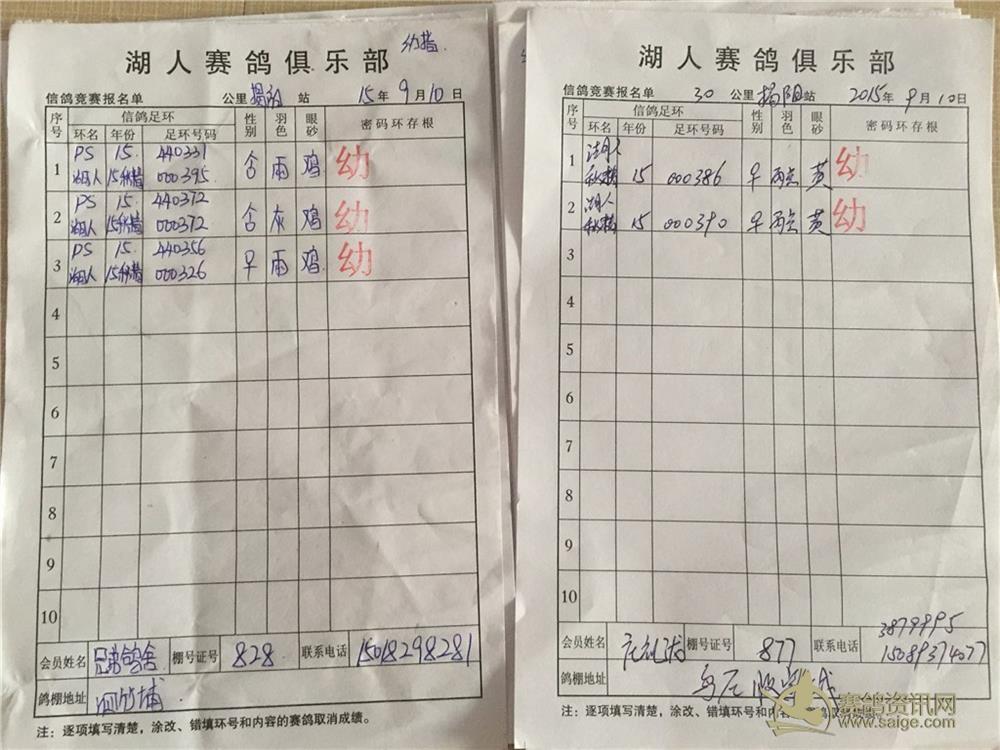 幼指
湖人赛鸽俱乐部
信鸽竞赛报名单 公里 揭阳 站 15年 9月10日
序号 信鸽足环 性别 羽色 眼砂 密码环存根
环名 年份 足环号码
1 PS 15. 440331 雨 鸡 幼
湖人 15秋指 000395
2 PS 15. 440372 灰 鸡 幼
湖人 15秋指 000372
3 PS 15. 440356 雨 鸡 幼
湖人 15秋指 000326
4
5
6
7
8
9
10
会员姓名 兄弟鸽舍 棚号证号 828 联系电话 15018298281
鸽棚地址
注：逐项填写清楚，涂改、错填环号和内容的赛鸽取消成绩。
湖人赛鸽俱乐部
信鸽竞赛报名单 30 公里 揭阳 站 2015年 9月10日
序号 信鸽足环 性别 羽色 眼砂 密码环存根
环名 年份 足环号码
1 湖人 幼
15 000386 黄
2 湖人 幼
15 000390 黄
3
4
5
6
7
8
9
10
3879995
会员姓名 棚号证号 877 联系电话 15089374077
鸽棚地址
注：逐项填写清楚，涂改、错填环号和内容的赛鸽取消成绩。
赛鸽资讯网
www.saige.com